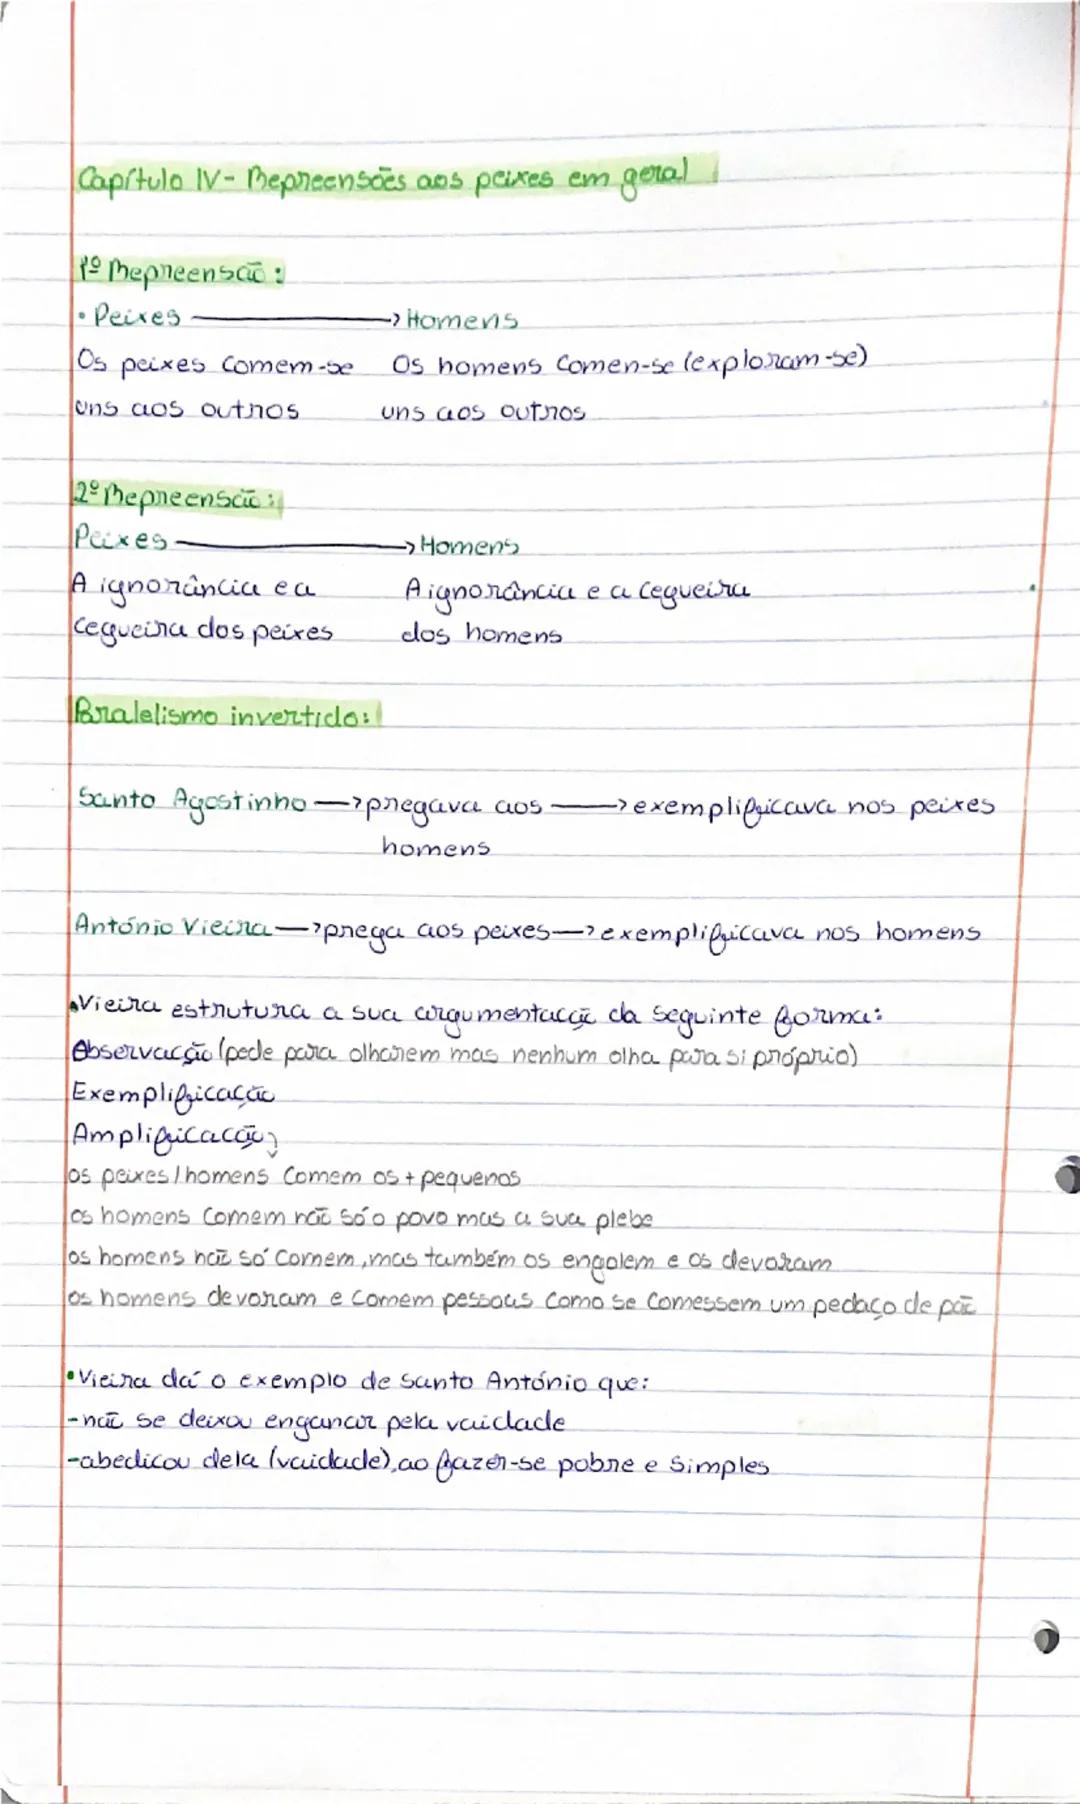 Capítulo IV - Repreensões aos peixes em geral
1º Repreensão:
• Peixes → Homens
Os peixes comem-se Os homens comen-se (exploram-se)
uns aos outros uns aos outros
2º Repreensão:
Peixes → Homens
A ignorância e a A ignorância e a cegueira
cegueira dos peixes dos homens
Pralelismo invertido:
Santo Agostinho → pregava aos → exemplificava nos peixes
homens
António Vieira → prega aos peixes → exemplificava nos homens
• Vieira estrutura a sua argumentacção da seguinte forma:
Observacção (pede para olharem mas nenhum olha para si próprio)
Exemplificação
Amplificacção
os peixes / homens comem os + pequenos
os homens comem não só o povo mas a sua plebe
os homens não só comem, mas também os engolem e os devoram
os homens devoram e comem pessoas como se comessem um pedaço de pão
• Vieira dá o exemplo de santo António que:
- não se deixou enganar pela vaidade
- abedicou dela (vaidade), ao fazer-se pobre e simples